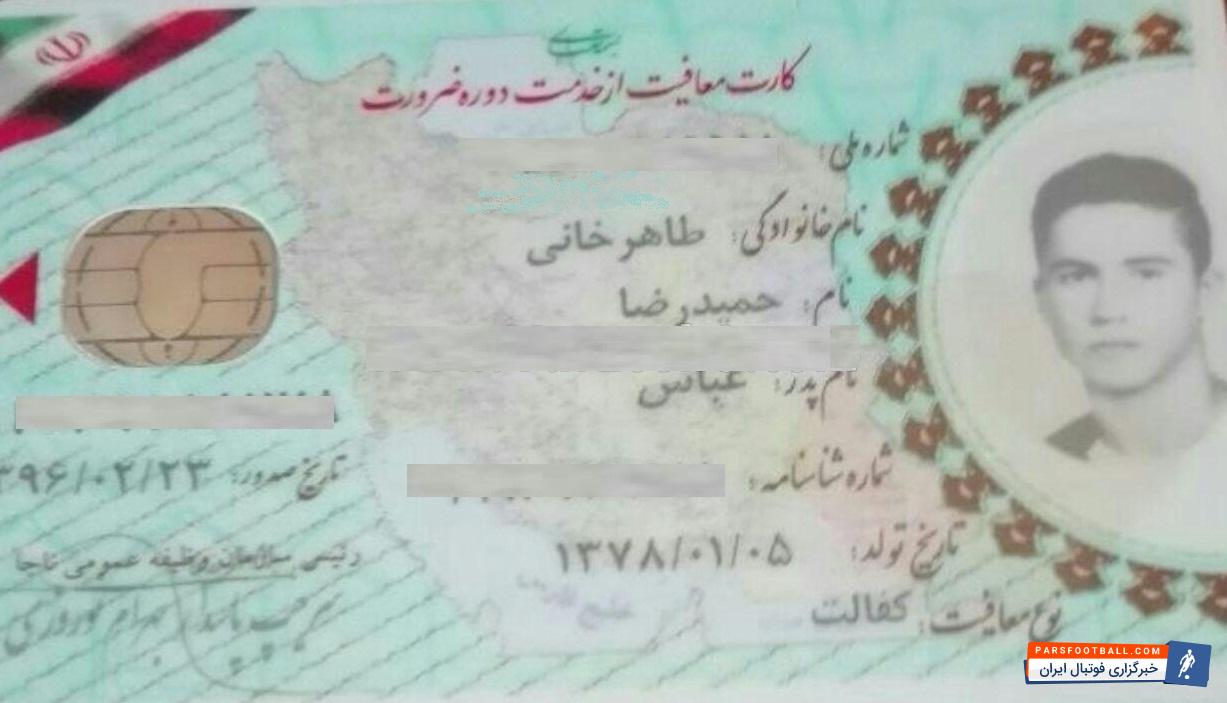 کارت معافیت از خدمت دوره ضرورت
شماره ملی:
نام خانوادگی: طاهرخانی
نام: حمیدرضا
نام پدر: عباس
شماره شناسنامه:
تاریخ تولد: ۱۳۷۸/۰۱/۰۵
نوع معافیت: کفالت
تاریخ صدور: ۳۹۶/۰۲/۲۳
رئیس سازمان وظیفه عمومی ناجا
سرتیپ پاسدار
خلیج فارس
PARSFOOTBALL.COM
خبرگزاری فوتبال ایران